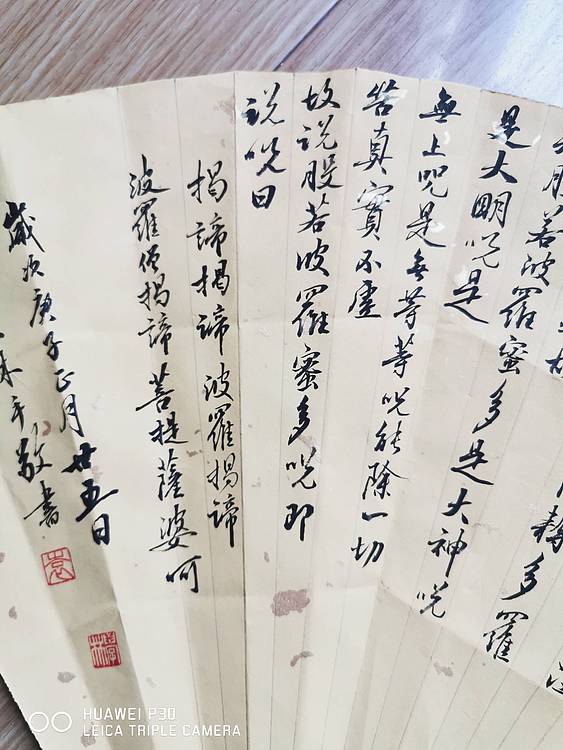 耨多羅
般若波羅蜜多是大神咒
是大明咒是
無上咒是無等等咒能除一切
苦真實不虛
故說般若波羅蜜多咒即
說咒曰
揭諦揭諦波羅揭諦
波羅僧揭諦菩提薩婆呵
歲次庚子正月廿五日
平敬書
HUAWEI P30
LEICA TRIPLE CAMERA